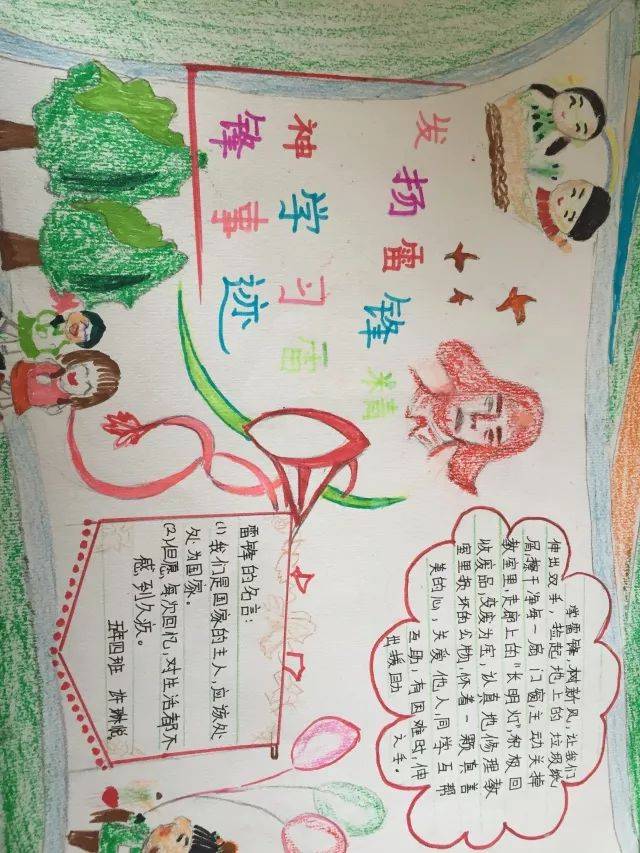 发扬雷锋精
神学习雷
锋事迹
学雷锋,树新风,让我们
伸出双手,捡起地上的垃圾纸
屑擦干净每一扇门窗主动关掉
教室里,走廊上的"长明灯,积极回
收废品,变废为宝,认真地修理教
室里损坏的公物,怀着一颗真善
美的心,关爱他人,同学互帮
互助,有困难时,伸
出援助之手。
雷锋的名言:
(1)我们是国家的主人,应该处
处为国家。
(2)但愿每次回忆,对生活都不
感到久疚。
四班